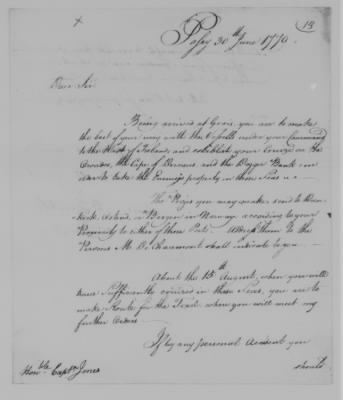 13
Passy 30th June 1779
Dear Sir
Being arrived at Groix, you are to make
the best of your way with the Vessells under your Command
to the West of Ireland, and establish your Cruize on the
Orcades, the Cape of Derneus, and the Dogger Bank in
order to take the Enemy's property in those Seas.
The Prizes you may make, send to Dun-
kirk, Ostend, or Bergen in Norway according to your
Proximity to either of those Ports. Address them to the
Persons M. De Chaumont shall indicate to you
About the 15th August, when you will
have sufficiently cruised in these Seas, you are to
make Route for the Texel, where you will meet my
further Orders
If by any personal Accident you
should
Honble Captn Jones